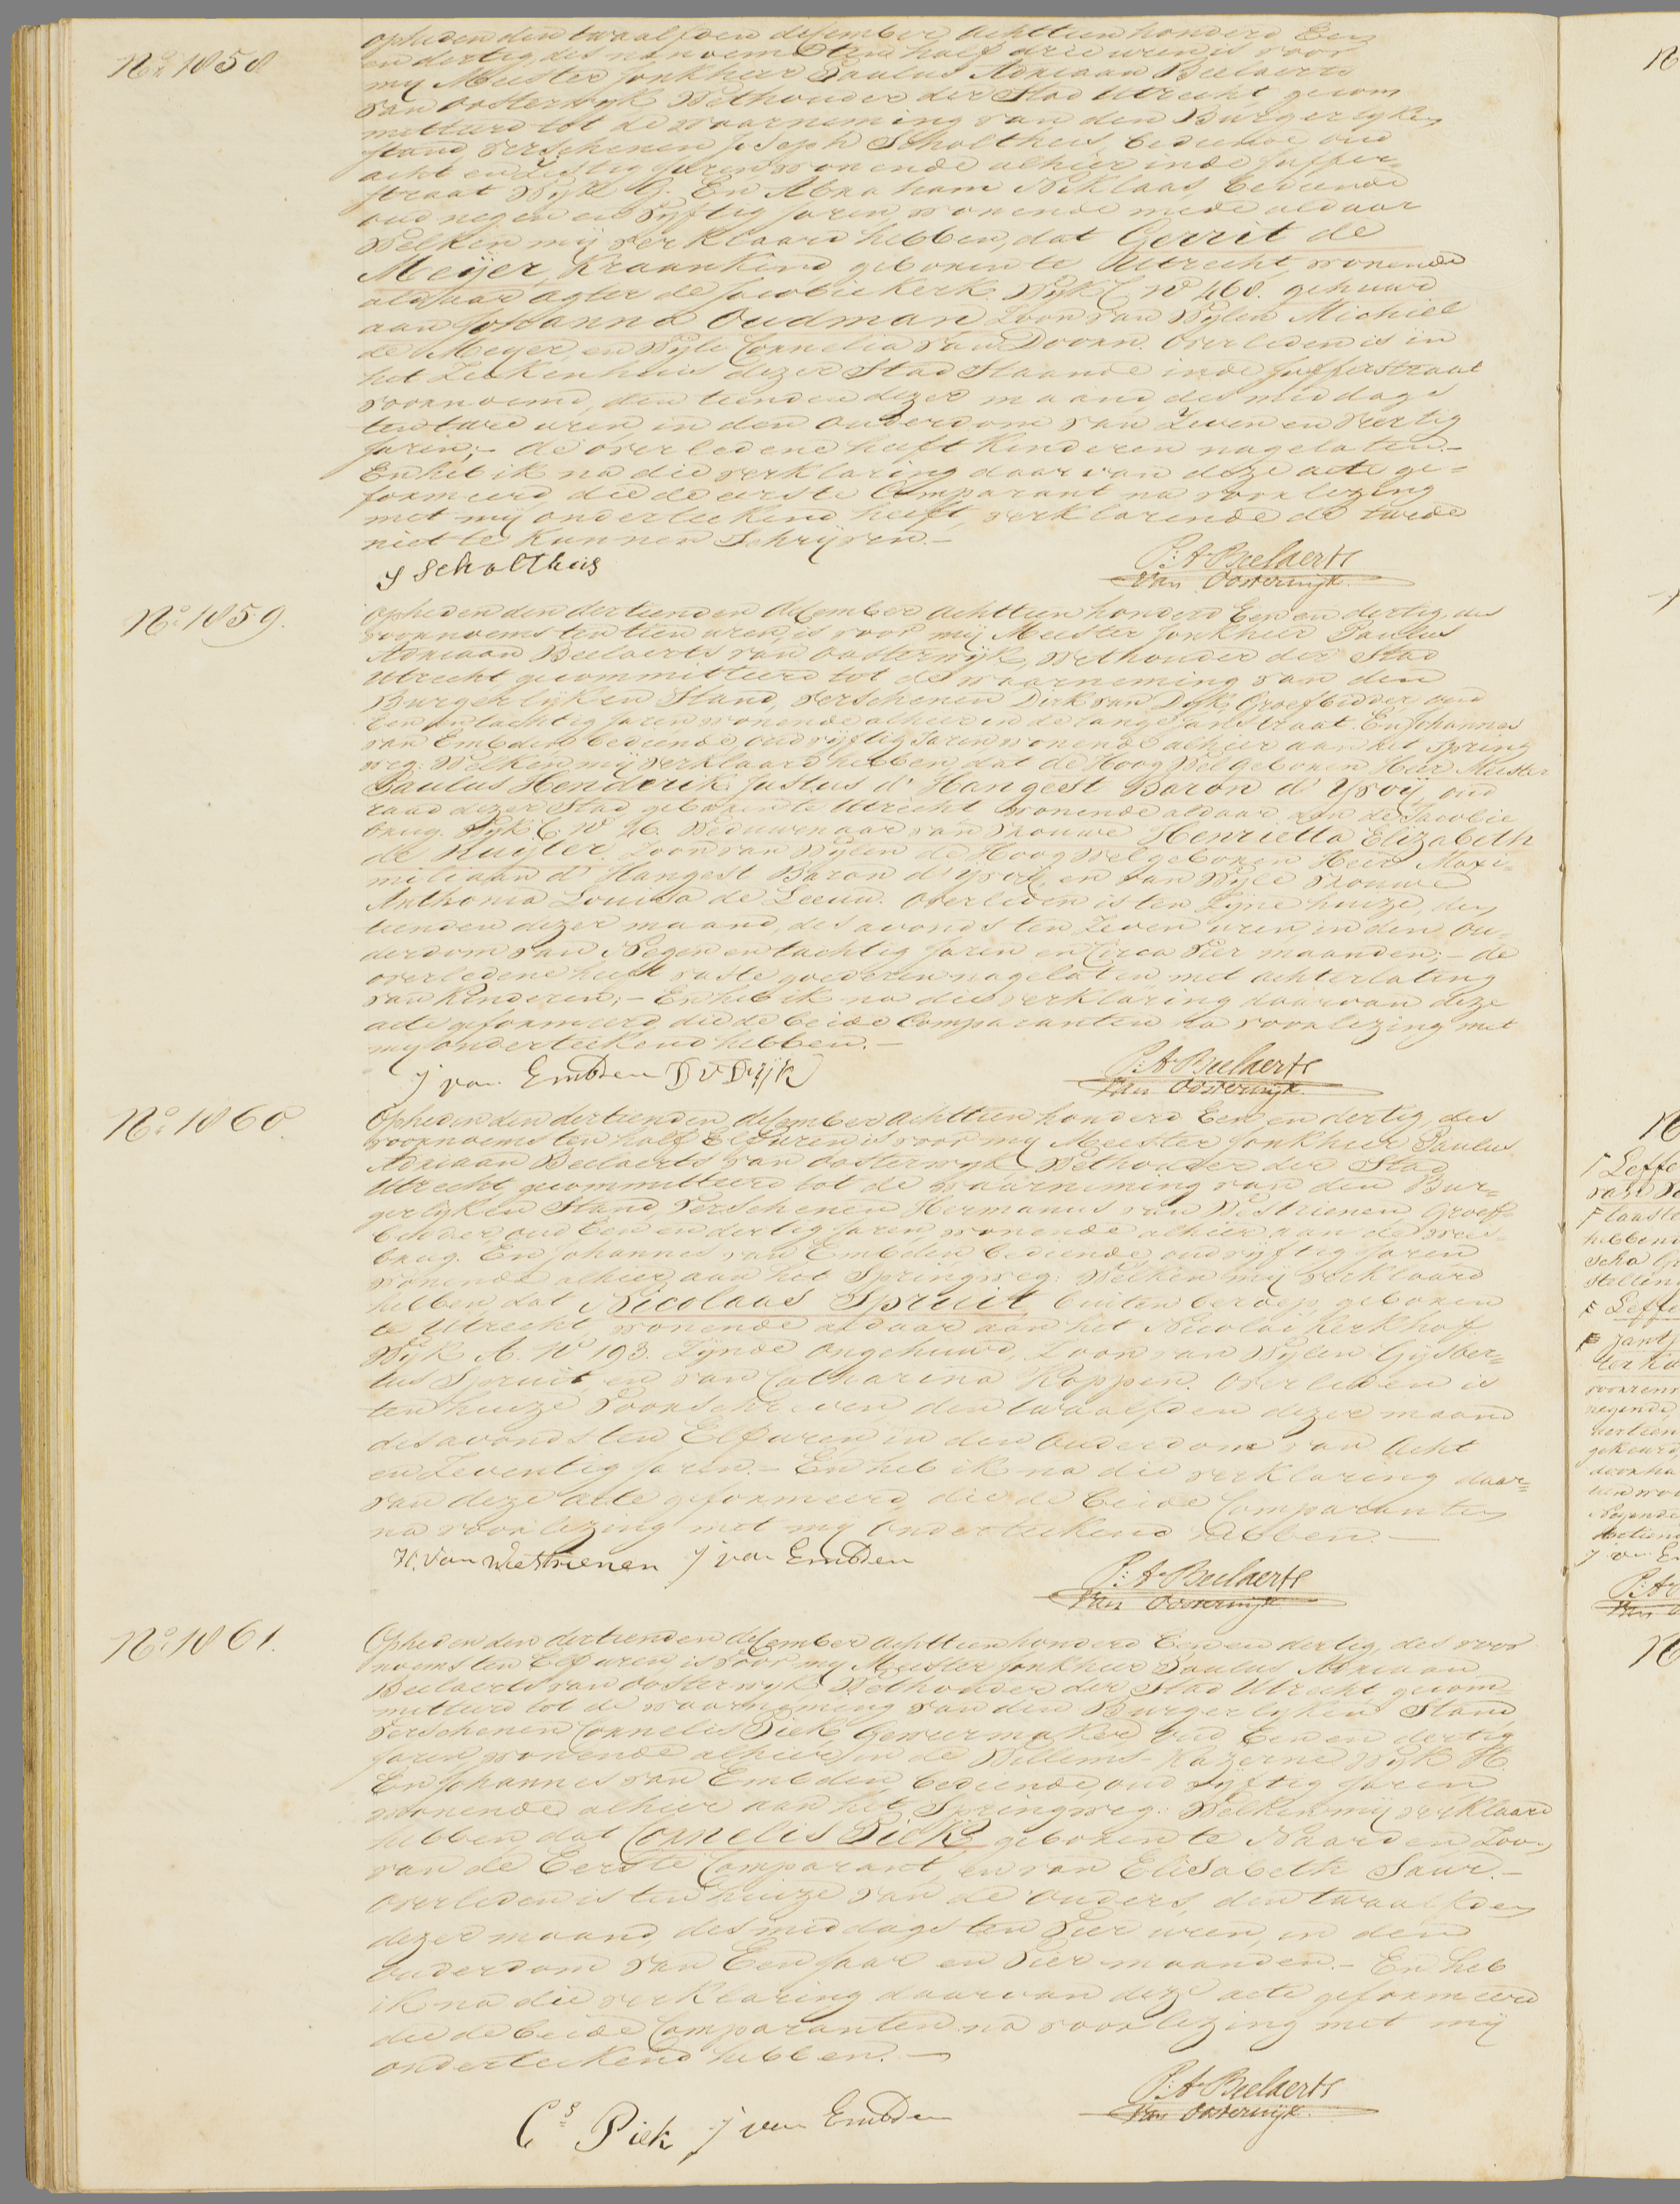 No. 1858
Opheden den twaalfden december achttienhonderd Een
en dertig des namiddags ten half drie uren is voor
mij Meester Jonkheer Paulus Adriaan Beelaerts
van Oosterwijk Wethouder der Stad Utrecht, gecom
mitteerd tot de waarneming van den Burgerlyken
stand, verschenen Joseph Scholtheis, bediende oud
acht en Zestig Jaren, wonende alhier in de Juffer-
straat Wijk G. En Abraham Niklaas, bediende
oud negen en vyftig Jaren, wonende mede aldaar
Welken mij verklaard hebben, dat Gerrit de
Meijer, Kraankind, geboren te Utrecht, wonende
aldaar agter de Jacobie kerk. Wijk C No 468. gehuwd
aan Johanna Oudman, Zoon van Wylen Michiel
de Meyer, en Wyle Cornelia van Doorn. Overleden is in
het Ziekenhuis dezer Stad Staande in de Jufferstraat
voornoemd, den tienden dezer maand, des middags
ten twee uren, in den Ouderdom van Zeven en veertig
Jaren;- de overledene heeft Kinderen nagelaten.-
En heb ik na die verklaring daar van deze acte ge=
formeerd, die de eerste Comparant na voorlezing
met mij onderteekend heeft, verklarende de twede
niet te kunnen Schrijven.-
J Scholtheis
P: A. Beelaerts
van Oosterwijk
No. 1859.
Opheden den dertienden december achttien honderd Een en dertig, des
voornoems ten tien uren, is voor mij Meester Jonkheer Paulus
Adriaan Beelaerts van Oosterwijk, Wethouder der Stad
Utrecht gecommitteerd tot de waarneming van den
Burgerlijken Stand, verschenen Dirk van Dijk Groefbidder oud
Een en tachtig Jaren, wonende alhier in de lange Jans straat. En Johannes
van Embden bediende, oud vyftig Jaren wonende alhier aan het Spring
weg: Welken mij verklaard hebben, dat de Hoog Wel geboren Heer Meester
Paulus Henderik Justus d' Hangest Baron d' Yvoij, oud
raad dezer Stad, geboren te Utrecht, wonende aldaar aan de Jacobie
brug. Wijk C No 46. Weduwenaar van Vrouwe Henrietta Elizabeth
de Ruijter, Zoon van Wylen de Hoog Wel geboren Heer Maxi-
miliaan d' Hangest Baron d' Yvoij, en van Wyle Vrouwe
Anthonia Louisa de Leeuw. Overleden is ten Zyne huize, den
tienden dezer maand, des avonds ten Zeven uren, in den Ou-
derdom van Negen en tachtig Jaren en Circa vier maanden;- de
overledene heeft vaste goederen nagelaten met achterlating
van Kinderen;- En heb ik na die verklaring daarvan deze
acte geformeerd, die de beide Comparanten na voorlezing met
mij onderteekend hebben.-
J van Embden D V Dijk
P: A. Beelaerts
van Oosterwijk
No. 1860.
Opheden den dertienden december achttien honderd Een en dertig, des
voornoems ten half Elf uren is voor mij Meester Jonkheer Paulus
Adriaan Beelaerts van Oosterwyk Wethouder der Stad
Utrecht, gecommitteerd tot de waarneming van den Bur=
gerlyken Stand, verschenen Hermanus van Westrienen, Groef-
bidder, oud Een en dertig Jaren, wonende alhier aan de Wees-
brug. En Johannes van Embden, bediende, oud vyftig Jaren
wonende alhier, aan het Springweg: Welken mij verklaard
hebben, dat Nicolaas Spruit, buiten beroep, geboren
te Utrecht, wonende aldaar aan het Nicolai kerkhof
Wijk A. No 193. Zynde Ongehuwd, Zoon van Wylen Gysber=
tus Spruit, en van Catharina Koppen. Overleden is
ten huize voorschreven, den twaalfden dezer maand
des avonds ten Elf uren, in den Ouderdom van Acht
en Zeventig Jaren.- En heb ik na die verklaring daar=
van deze acte geformeerd, die de beide Comparanten
na voorlezing met mij onderteekend hebben.-
H. van Westrienen J van Embden
P: A. Beelaerts
van Oosterwijk
No. 1861.
Opheden den dertienden december achttienhonderd Een en dertig, des voor
noems ten Elf uren, is voor mij Meester Jonkheer Paulus Adriaan
Beelaerts van Oosterwyk Wethouder der Stad Utrecht gecom-
mitteerd tot de waarneming van den Burgerlyken Stand,
verschenen Cornelis Piek, Geweermaker oud Een en dertig
Jaren, wonende alhier in de Willems-Kazerne Wyk H.
En Johannes van Embden, bediende, oud vyftig Jaren
wonende alhier aan het Springweg: Welken mij verklaard
hebben, dat Cornelis Piek, geboren te Naarden, Zoon
van de Eerste Comparant, en van Elisabeth Saur.-
Overleden is ten huize van de Ouders, den twaalfden
dezer maand, des middags ten Vier uren, in den
Ouderdom van Een Jaar en vier maanden.- En heb
ik na die verklaring daarvan deze acte geformeerd
die de beide Comparanten na voorlezing met mij
onderteekend hebben.-
Cs Piek J van Embden
P: A. Beelaerts
van Oosterwijk